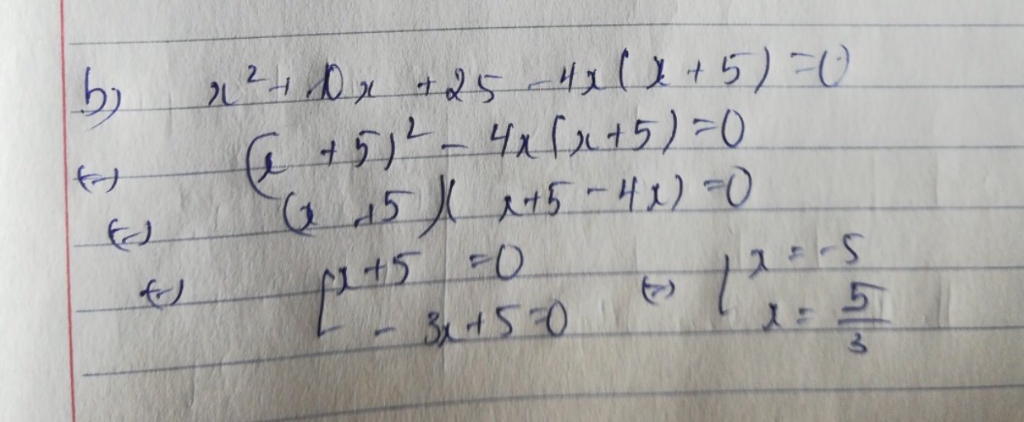 b) x² + 10x + 25 - 4x(x + 5) = 0
(=) (x + 5)² - 4x(x+5) = 0
(=) (x + 5)(x+5 - 4x) = 0
(=) [x+5 = 0 (=) [x = -5
- 3x+5 = 0 x = 5/3